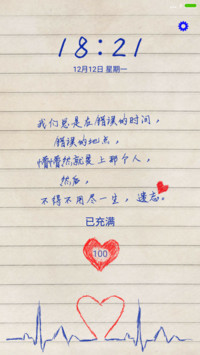 18:21
12月12日 星期一
我们总是在错误的时间,
错误的地点,
懵懵然就爱上那个人,
然后,
不得不用尽一生,遗忘。
已充满
100